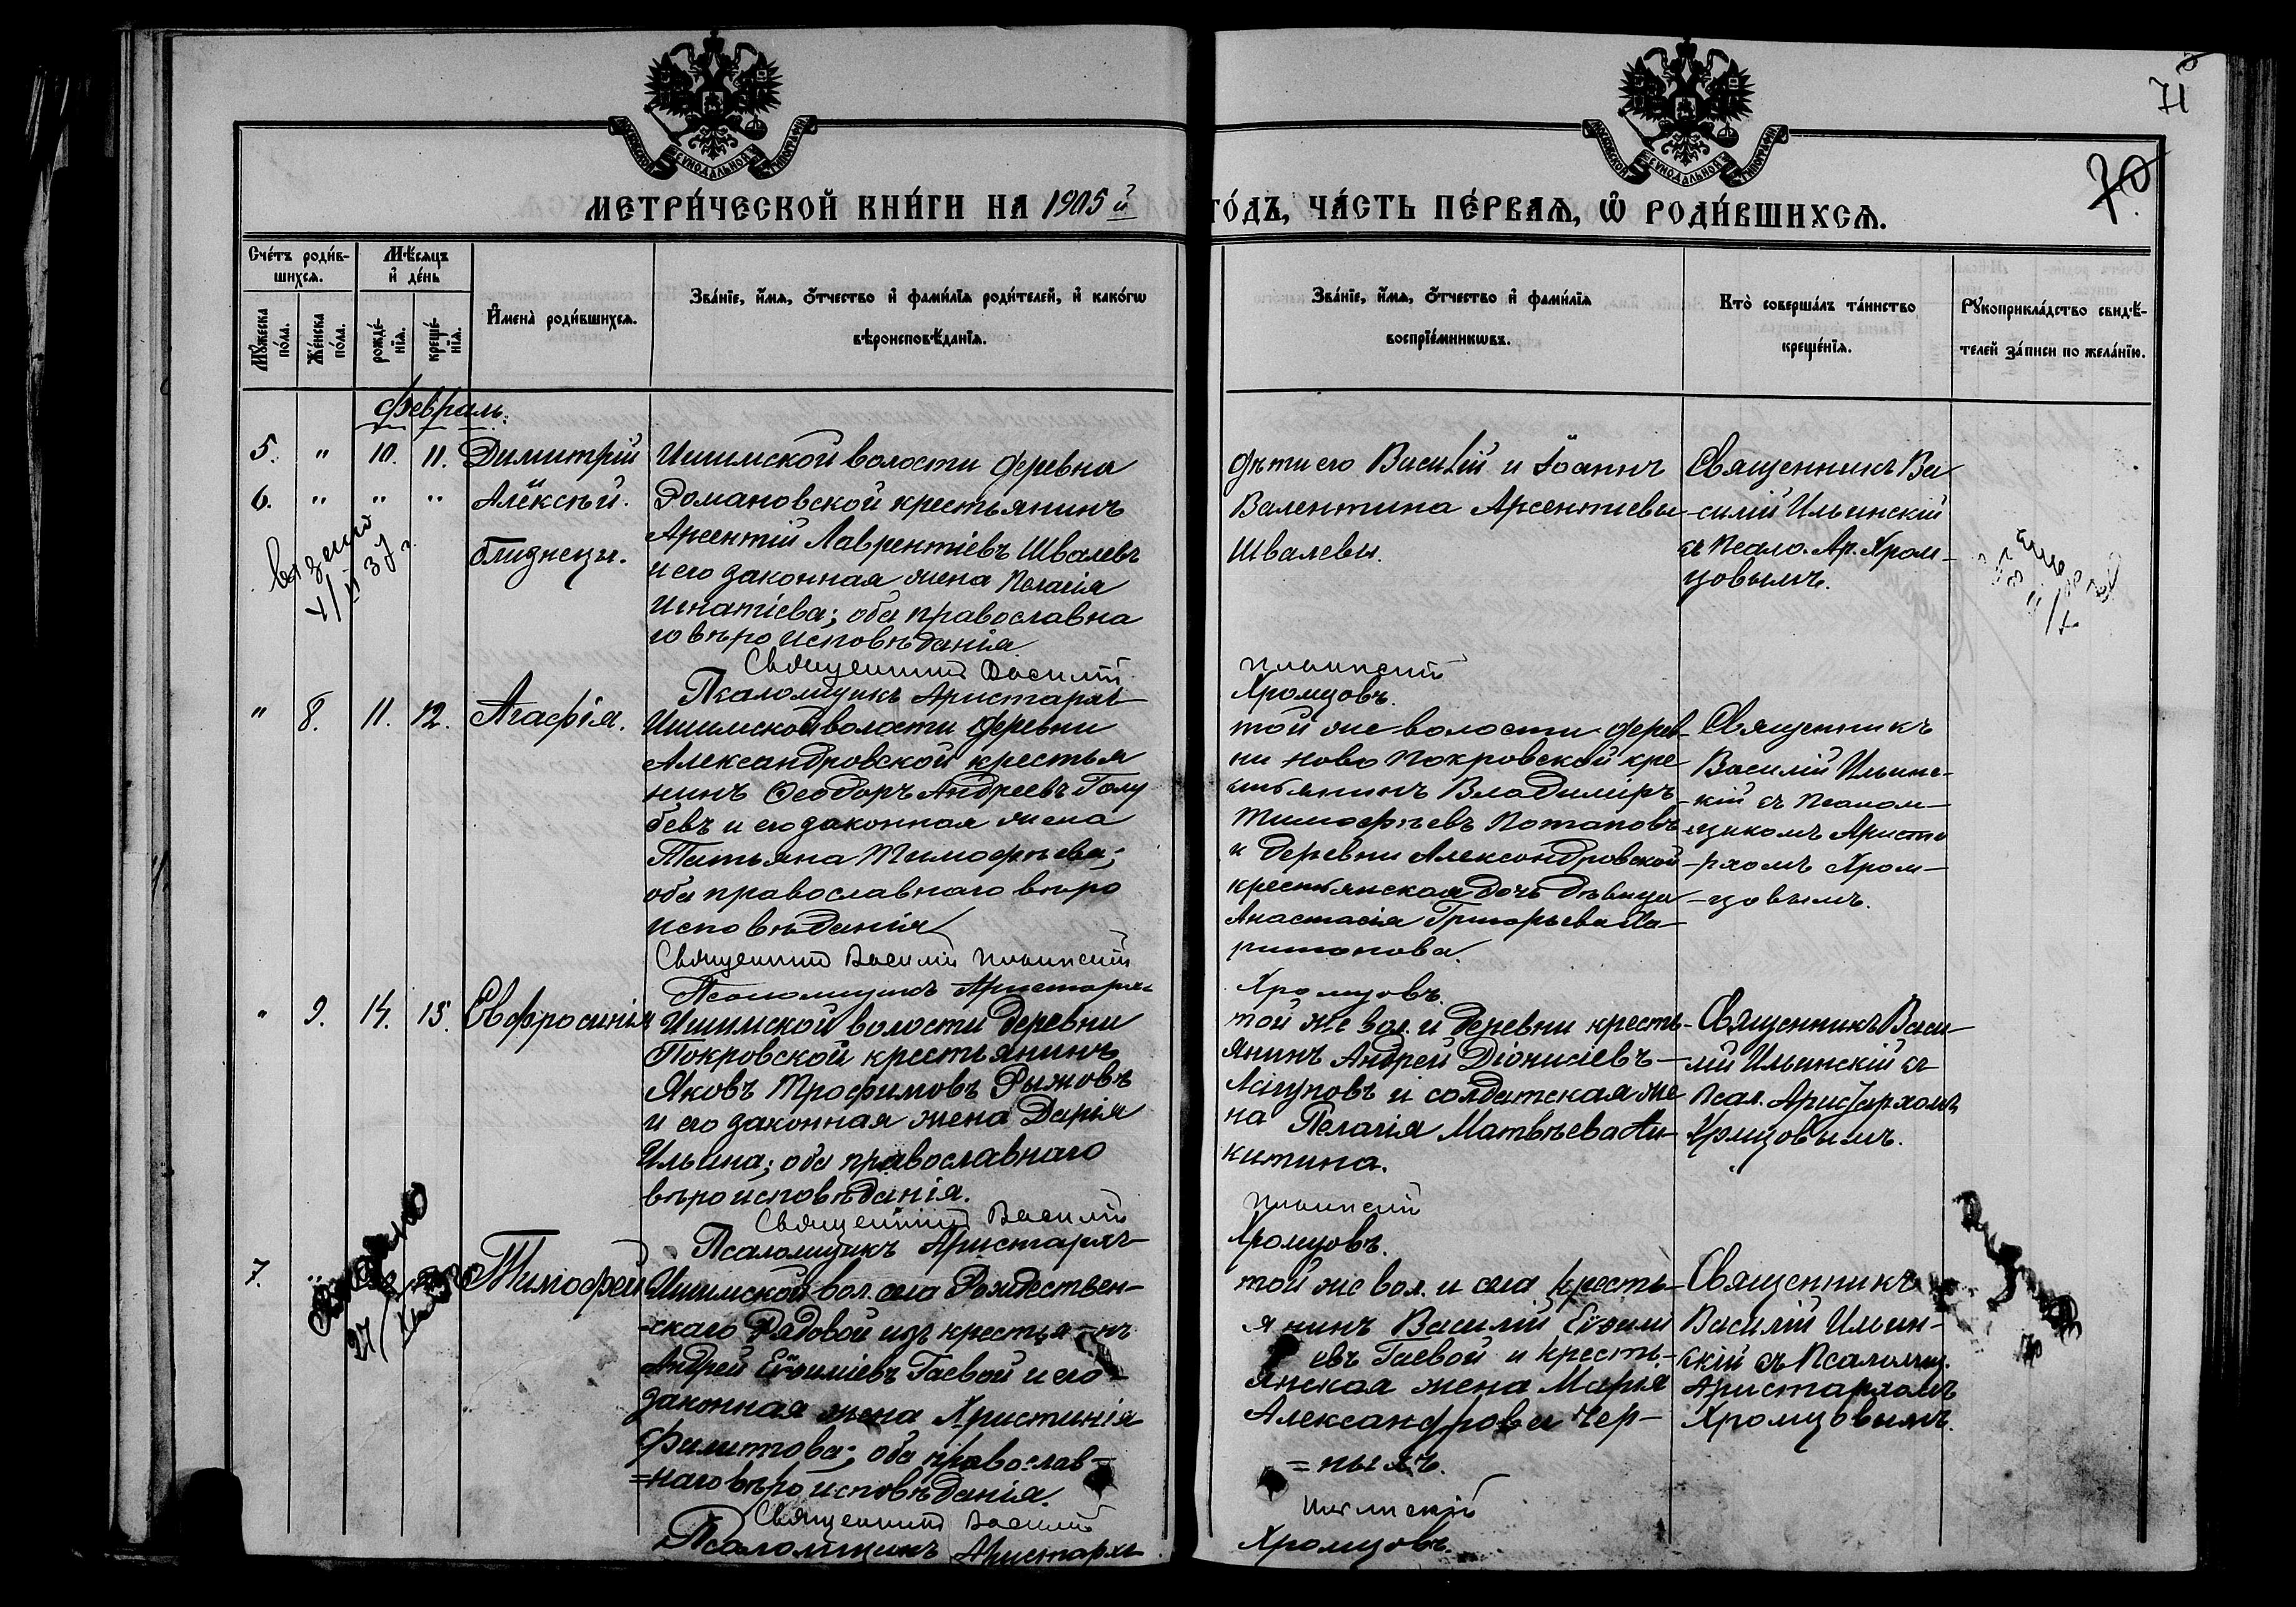 71
70
МОСКОВСКОЙ СѴНОДАЛЬНОЙ ТИПОГРАФІИ
МОСКОВСКОЙ СѴНОДАЛЬНОЙ ТИПОГРАФІИ
МЕТРИ́ЧЕСКОЙ КНИ́ГИ НА 1905й ГО́ДЪ, ЧА́СТЬ ПЕ́РВАѦ, Ѽ РОДИ́ВШИХСѦ.
Сче́тъ роди́в-
шихсѧ.
Мꙋ́жеска по́ла.
Же́нска по́ла.
Мѣ́сѧцъ
и҆ де́нь
рожде́-
нїѧ.
креще́-
нїѧ.
И҆мена̀ роди́вшихсѧ.
Зва́нїе, и҆́мѧ, ѻ҆́тчество и҆ фами́лїѧ роди́телей, и҆ како́гѡ
вѣроисповѣ́данїѧ.
Зва́нїе, и҆́мѧ, ѻ҆́тчество и҆ фами́лїѧ
воспрїе́мникѡвъ.
Кто̀ соверша́лъ та́инство
креще́нїѧ.
Рꙋкоприкла́дство свидѣ́-
телей за́писи по жела́нїю.
Февраль.
5. " 10. 11. Димитрій
6. " " " Алексѣй.
близнецы.
Ишимской волости деревни
Романовской крестьянинъ
Арсентій Лаврентіевъ Швалевъ
и его законная жена Пелагія
Игнатіева; оба православна
го вѣроисповѣданія.
Священникъ Василій
Псаломщикъ Аристархъ
дѣти его Василій и Іоаннъ
Валентина Арсентиевы
Швалевы.
Ильинскій
Хромцовъ.
Священникъ Ва
силій Ильинскій
съ Псало. Ар. Хром-
цовымъ.
" 8. 11. 12. Агафія.
Ишимской волости деревни
Александровской крестья
нинъ Ѳеодоръ Андреевъ Голу
бевъ и его законная жена
Татьяна Тимофѣева;
оба православнаго вѣро
исповѣданія
Священникъ Василій Ильинскій
Псаломщикъ Аристархъ
той же волости дерев-
ни Ново Покровской кре
стьянинъ Владимиръ
Тимофѣевъ Потаповъ
и деревни Александровской
крестьянская дочь дѣвица
Анастасія Григорьева Ха-
ритонова.
Хромцовъ.
Священникъ
Василій Ильинс-
кій съ Псалом-
щикомъ Ариста
рхомъ Хром-
цовымъ.
" 9. 14. 15. Евфросинія
Ишимской волости деревни
Покровской крестьянинъ
Яковъ Трофимовъ Рыжовъ
и его законная жена Дарія
Ильина; оба православнаго
вѣроисповѣданія.
Священникъ Василій
Псаломщикъ Аристархъ
той же вол. и деревни кресть-
янинъ Андрей Діонисіевъ-
и солдатская же
на Пелагія Матвѣева Ни-
китина.
Ильинскій
Хромцовъ.
Священникъ Васи-
лій Ильинскій съ
Псал. Аристархомъ
Хромцовымъ.
7. Тимофей
Ишимской вол. села Рождествен-
-скаго Рядовой изъ крестья-нъ
Андрей Евѳиміевъ Гаевой и его
законная жена Христинія
Филитова; оба православ=
=наго вѣроисповѣданія.
Священникъ Василій
Псаломщикъ Аристархъ
той же вол. и села кресть-
янинъ Василій Евѳими
евъ Гаевой и кресть-
янская жена Марія
Александрова Чер-
=ныхъ.
Ильинскій
Хромцовъ.
Священникъ
Василій Ильин-
скій съ Псаломщ.
Аристархомъ
Хромцовымъ.